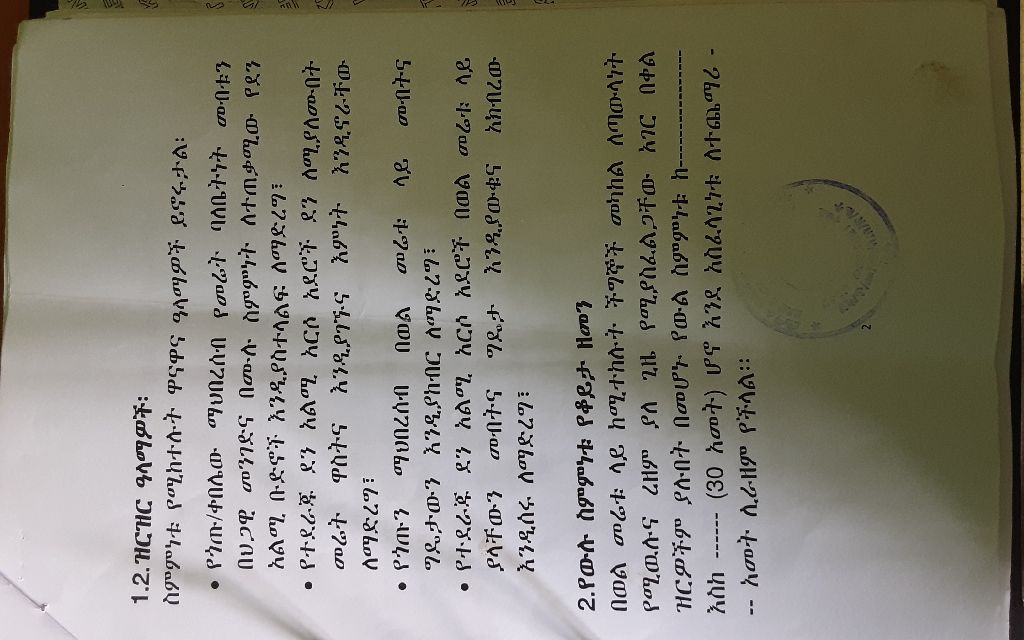 1.2. ዝርዝር ዓላማዎች፡
ስምምነቱ የሚከተሉት ዋናዋና ዓላማዎች ይኖሩታል፡
• የጎጡ/ቀበሌው ማህበረሰብ የመሬት ባለቤትነት መብቱን
በህጋዊ መንገድና በሙሉ ስምምነት ለተጠቃሚው የደን
አልሚ ቡድኖች እንዲያስተላልፍ ለማድረግ፤
• የተደራጁ ደን አልሚ አርሶ አደሮች ደን ለሚያለሙበት
መሬት ዋስትና እንዲያገኙና እምነት እንዲኖራቸው
ለማድረግ፤
• የጎጡን ማህበረሰብ በወል መሬቱ ላይ መብትና
ግዴታውን እንዲያከብር ለማድረግ፤
• የተደራጁ ደን አልሚ አርሶ አደሮች በወል መሬቱ ላይ
ያላቸውን መብትና ግዴታ እንዲያውቁና አክብረው
እንዲሰሩ ለማድረግ፤
2.የውሉ ስምምነቱ የቆይታ ዘመን
በወል መሬቱ ላይ ከሚተከሉት ችግኞች መካከል ለጣውላነት
የሚዉሉና ረዘም ያለ ጊዜ የሚያስፈልጋቸው አገር በቀል
ዝርያዎችም ያሉበት በመሆኑ የውል ስምምነቱ ከ---------------
እስከ ------ (30 አመት) ሆኖ እንደ አስፈላጊነቱ ለተጨማሪ -
-- አመት ሊራዘም የችላል፡፡
2